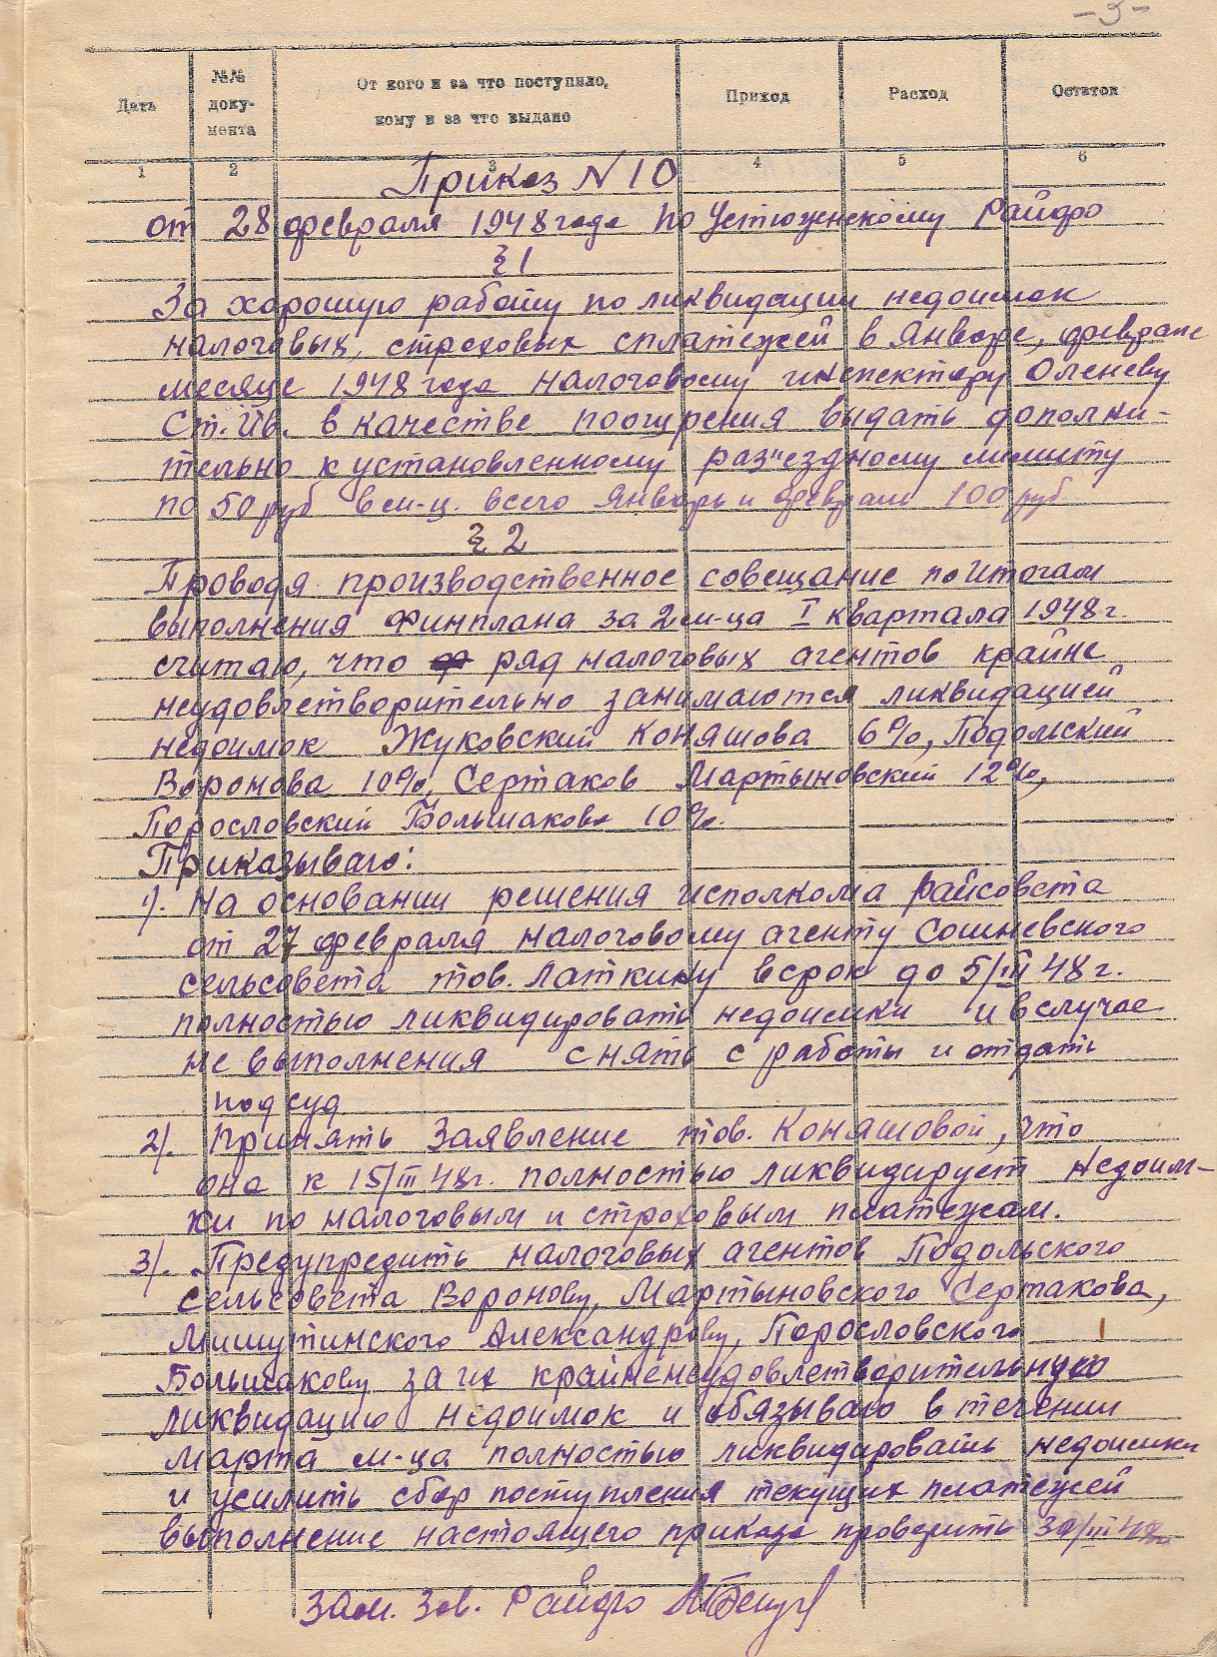 -9-
Дать
№№ доку-
мента
От кого и за что поступило,
кому и за что выдано
Приход
Расход
Остаток
1 2 3 4 5 6
Приказ N 10
от 28 февраля 1948 года по Устюженскому Райфо
§ 1
За хорошую работу по ликвидации недоимок
налоговых, страховых сплатежей в январе, феврале
месяце 1948 года налоговому инспектору Оленеву
Ст. Ив. в качестве поощрения выдать дополни-
тельно к установленному раз"ездному лимиту
по 50 руб в м-ц. всего январь и февраль 100 руб
§ 2
Проводя производственное совещание по итогам
выполнения Финплана за 2 м-ца I квартала 1948 г.
считаю, что ряд налоговых агентов крайне
неудовлетворительно занимаются ликвидацией
недоимок Жуковский Коняшова 6%, Подольский
Воронова 10%, Сертаков Мартыновский 12%,
Поросло­вский Большакова 10%.
Приказываю:
1). На основании решения исполкома райсовета
от 27 февраля налоговому агенту Сошневского
сельсовета тов. Латкину в срок до 5/III 48 г.
полностью ликвидировать недоимки и в случае
не выполнения снять с работы и отдать
под суд
2). Принять Заявление тов. Коняшовой, что
она к 15/III 48 г. полностью ликвидирует недоим-
ки по налоговым и страховым платежам.
3). Предупредить налоговых агентов Подольского
сельсовета Воронову, Мартыновского Сертакова,
Мишутинского Александрову, Поросло­вского
Большакову за их крайненеудовлетворительную
ликвидацию недоимок и обязываю в течении
марта м-ца полностью ликвидировать недоимки
и усилить сбор поступления текущих платежей
выполнение настоящего приказа проверить 30/III 48
Зам. Зав. Райфо